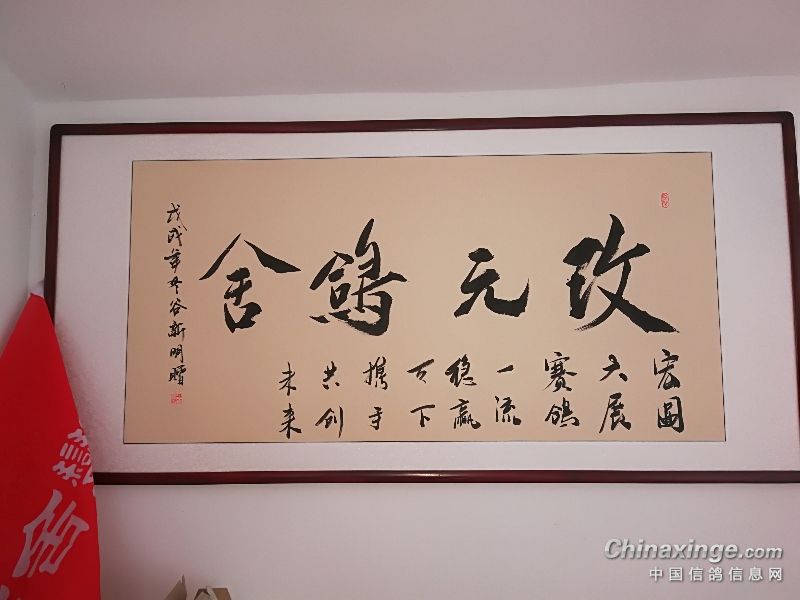 玫元鸽舍
宏图
大展
赛鸽
一流
稳赢
天下
携手
共创
未来
戊戌年冬谷新明赠
Chinaxinge.com
中国信鸽信息网